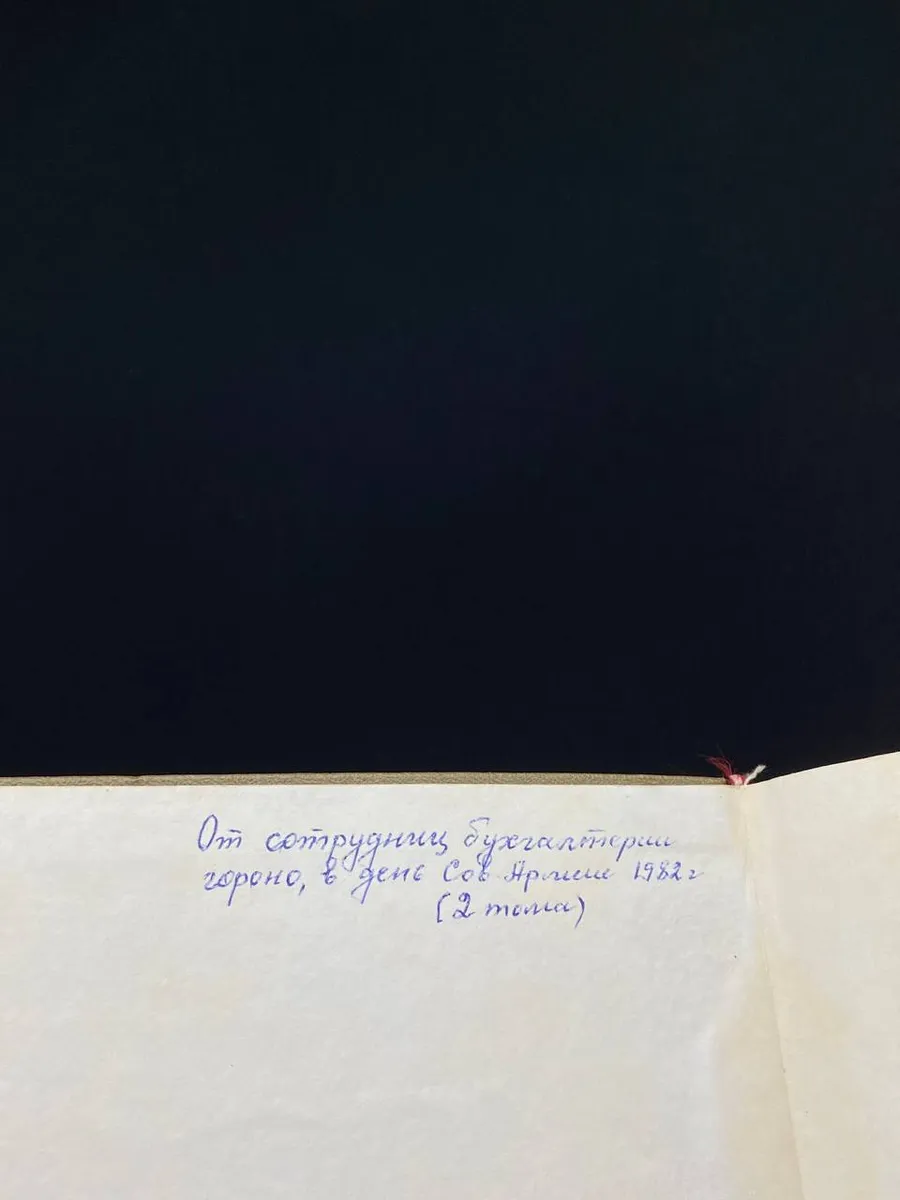 От сотрудниц бухгалтерии
гороно, в день Сов Армии 1982 г
(2 тома)